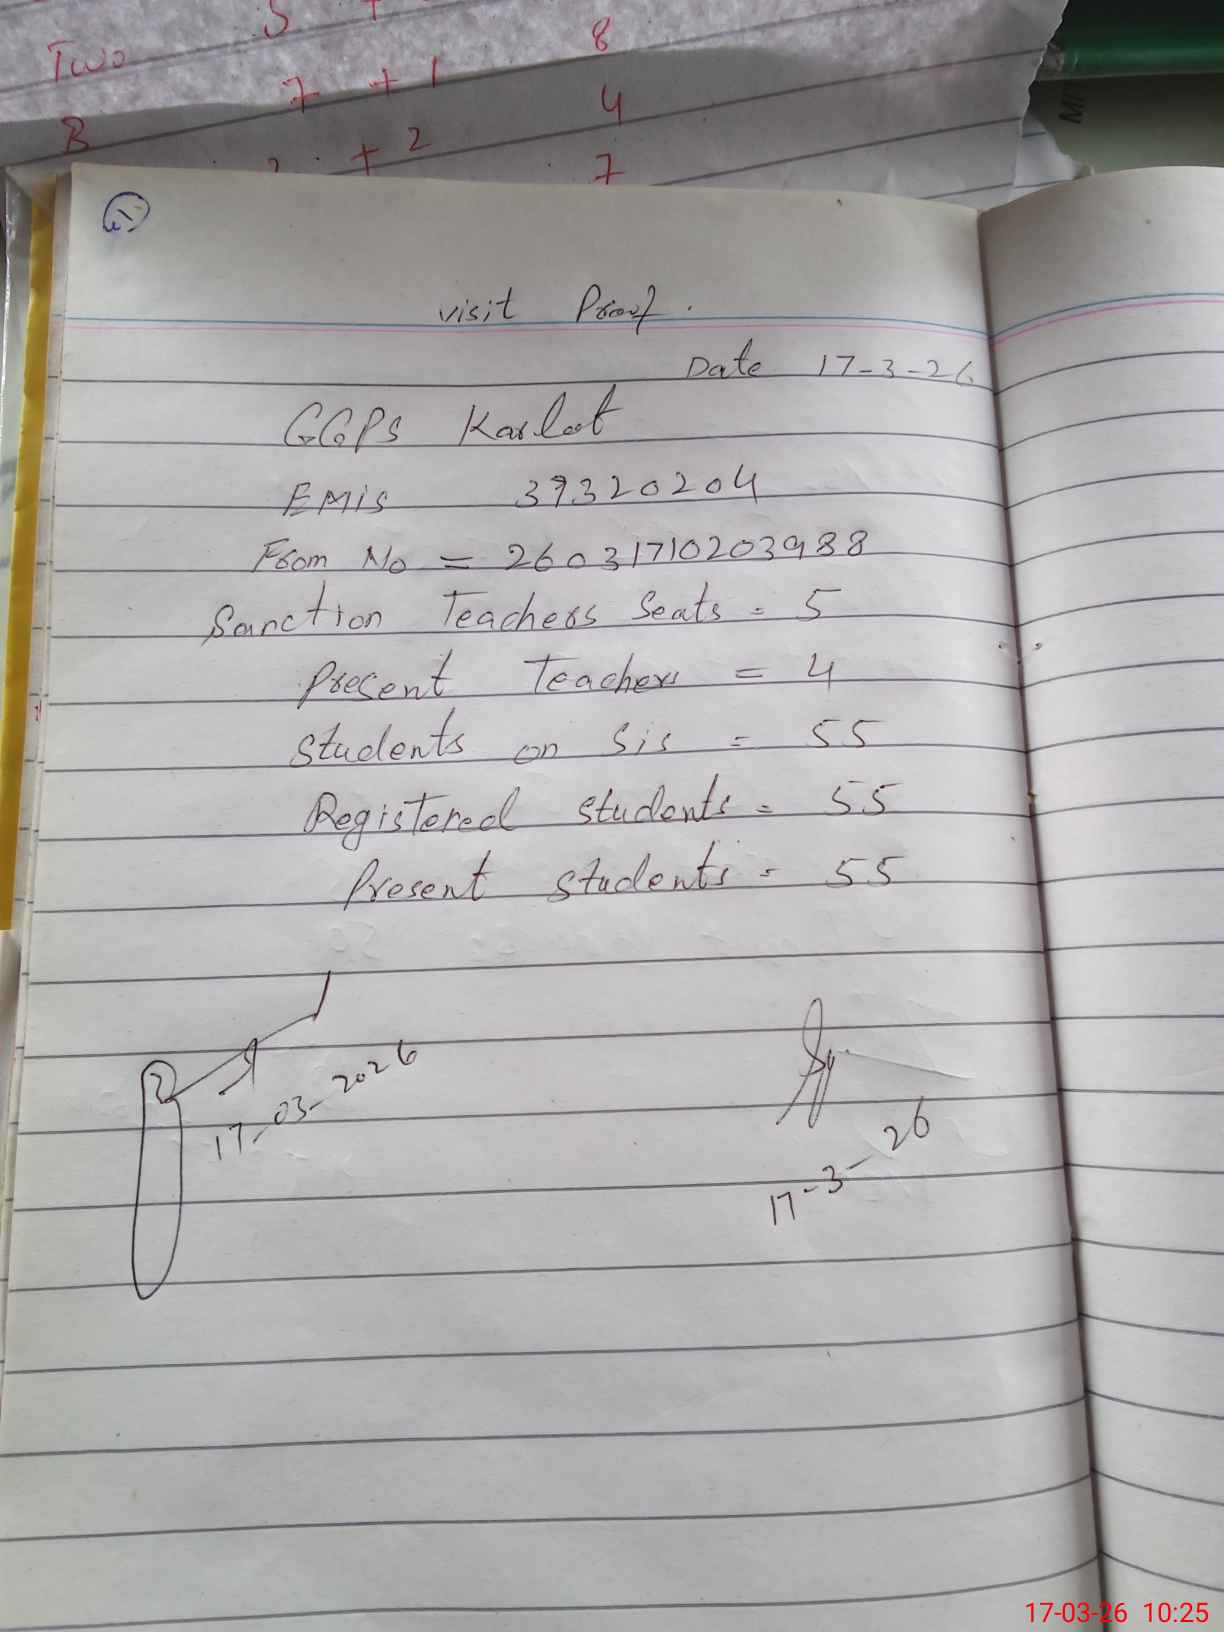 Two 5 +
8
7 + 1
4
B
2 + 2
7
visit Proof.
Date 17-3-26
GGPS Karlot
EMIS 37320204
From No = 26031710203988
Sanction Teachers Seats = 5
Present Teachers = 4
Students on Sis = 55
Registered students = 55
Present students = 55
17-03-2026
17-3-26
17-03-26 10:25